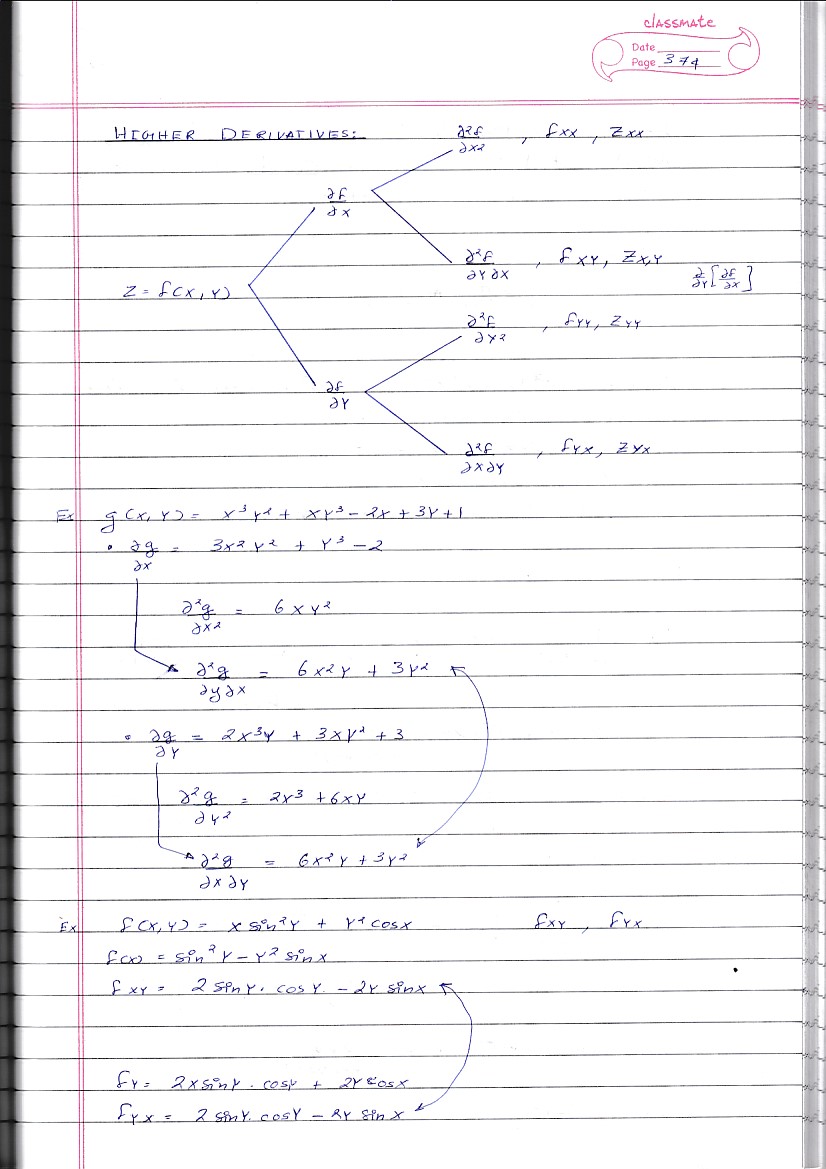 classmate
Date
Page 374
HIGHER DERIVATIVES:
∂²f/∂x² , fxx , Zxx
∂f/∂x
∂²f/∂y∂x , fxy, Zx,y
∂/∂y[∂f/∂x]
Z = f(x, y)
∂²f/∂y² , fyy, Zyy
∂f/∂y
∂²f/∂x∂y , fyx, Zyx
Ex g(x, y) = x³y² + xy³ - 2x + 3y + 1
• ∂g/∂x = 3x²y² + y³ - 2
∂²g/∂x² = 6xy²
∂²g/∂y∂x = 6x²y + 3y²
• ∂g/∂y = 2x³y + 3xy² + 3
∂²g/∂y² = 2x³ + 6xy
∂²g/∂x∂y = 6x²y + 3y²
Ex f(x, y) = x sin²y + y² cosx fxy , fyx
f(x) = sin²y - y² sinx
fxy = 2 siny . cosy. - 2y sinx
fy = 2x siny . cosy + 2y cosx
fyx = 2 siny. cosy - 2y sinx